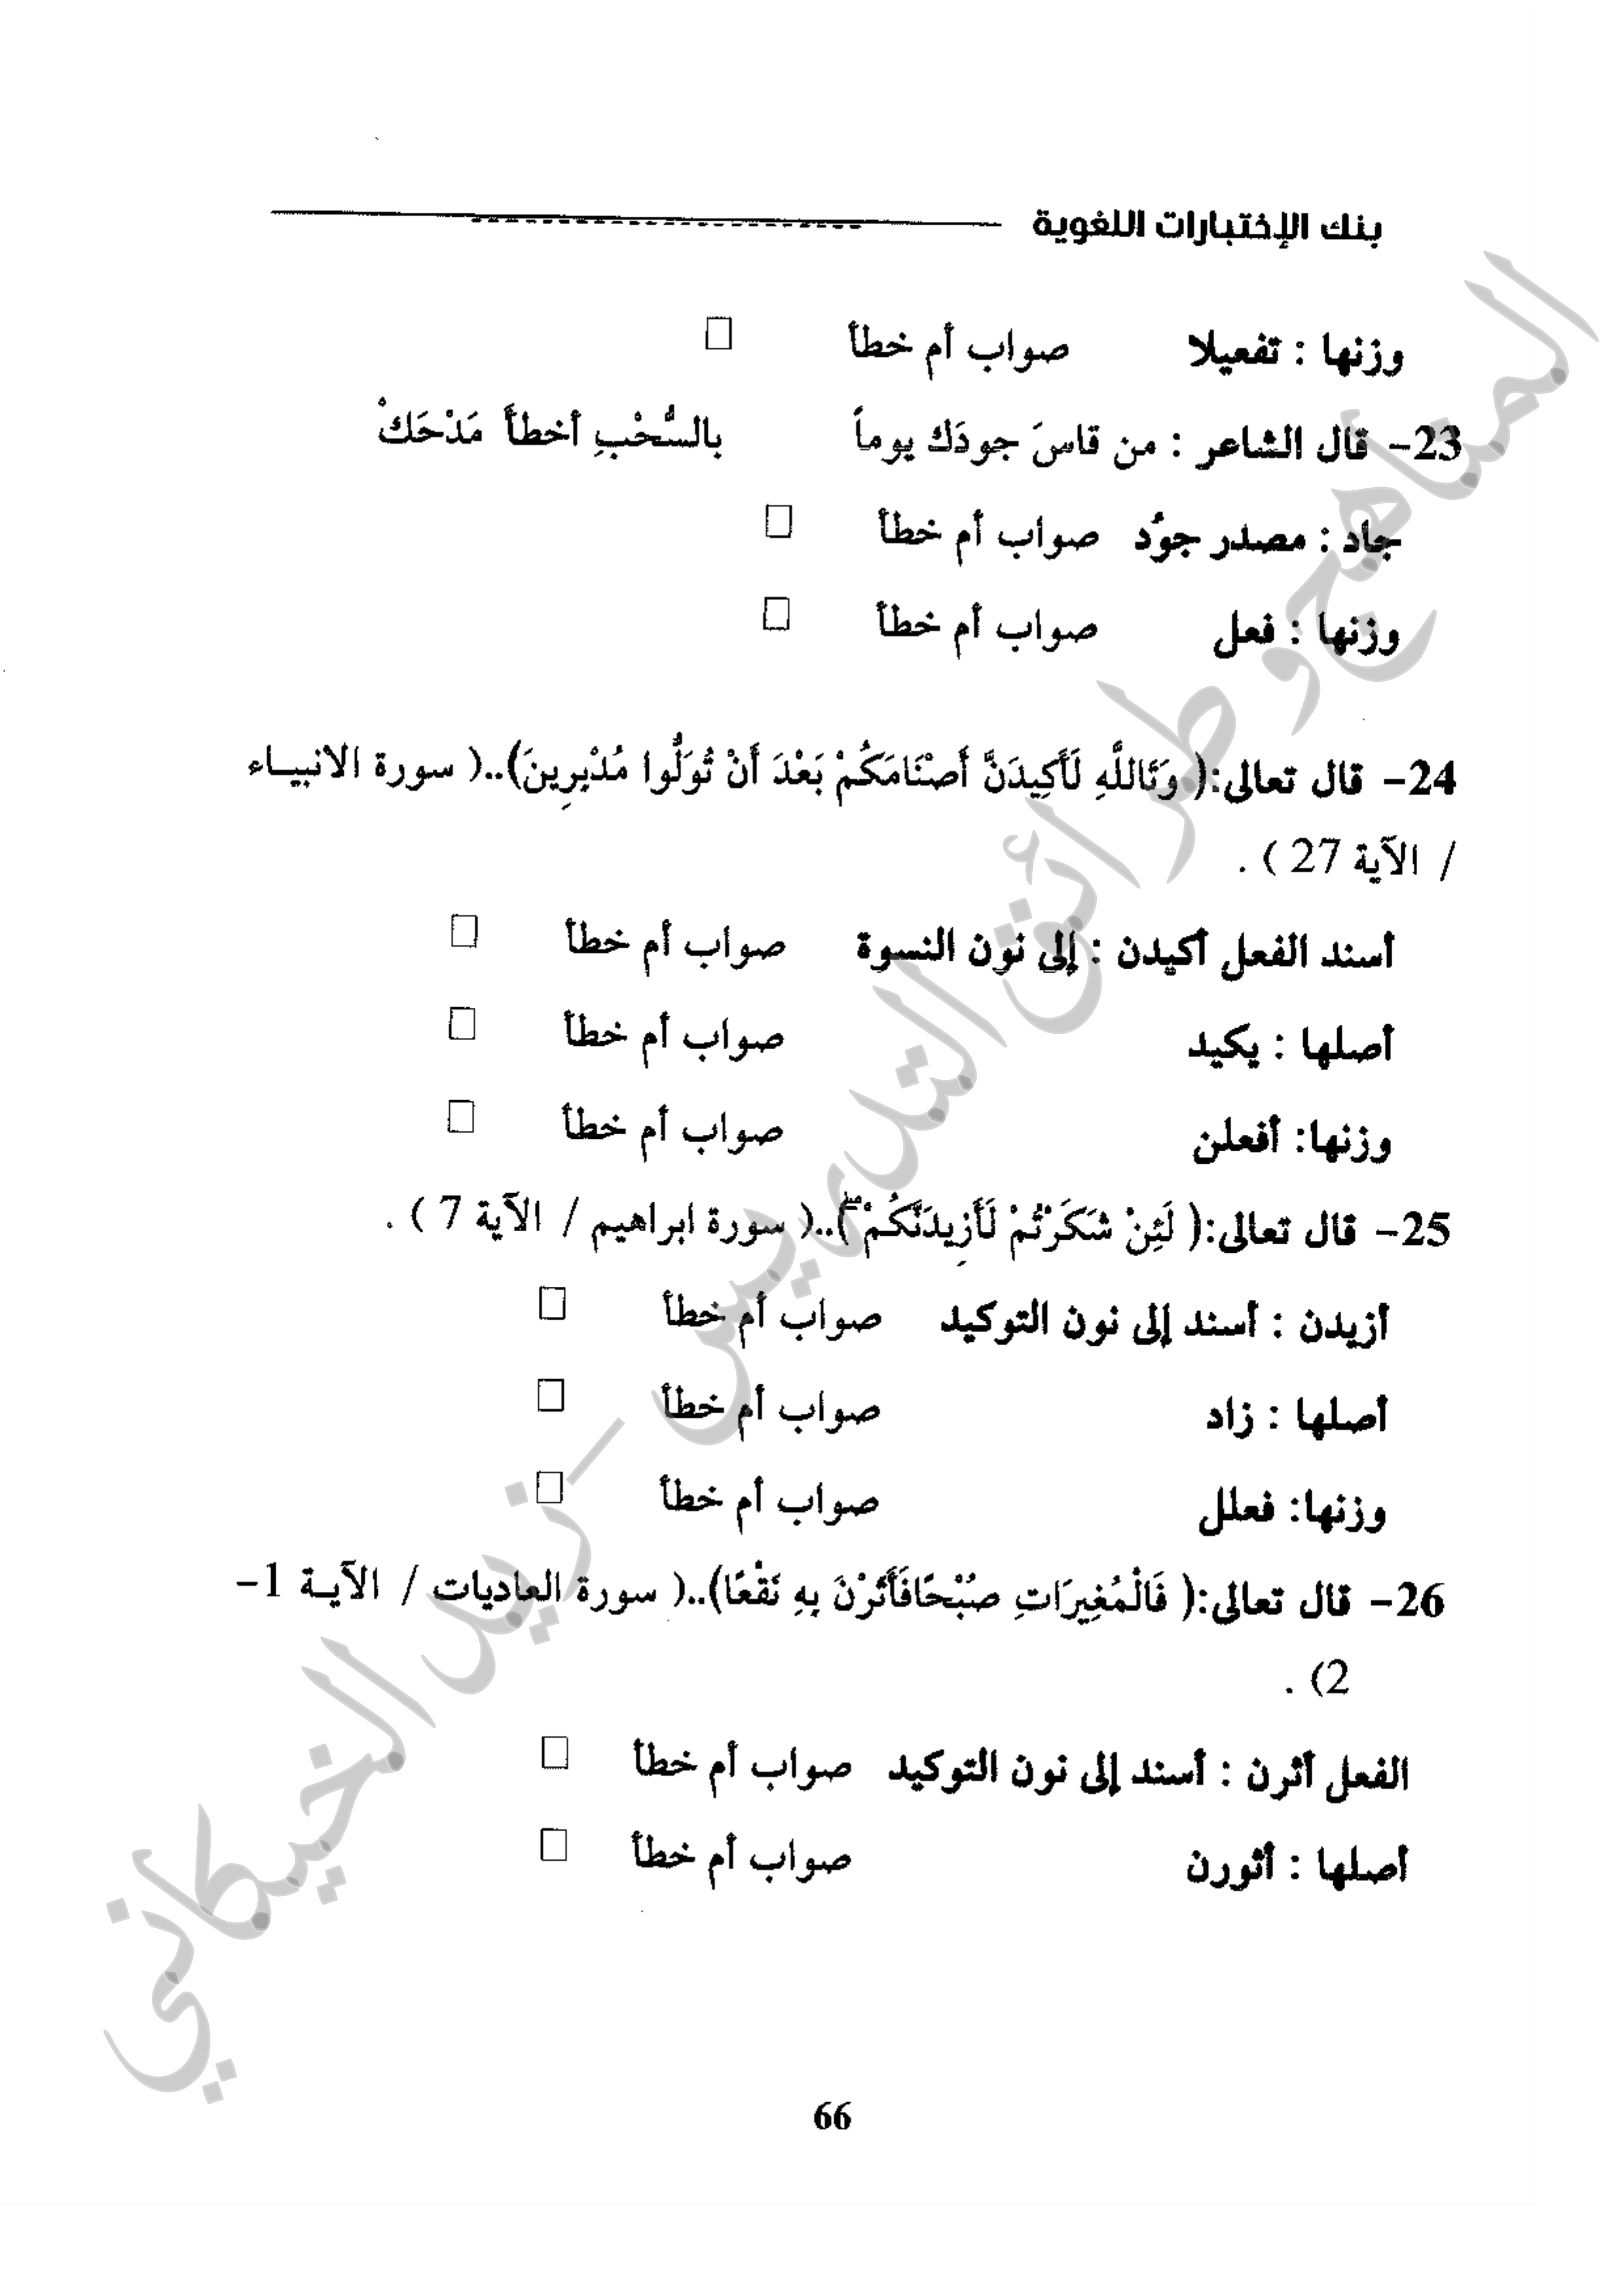 بنك الإختبارات اللغوية
وزنها : تفعيلا صواب أم خطأ
23- قال الشاعر : من قاسَ جودَك يوماً بالسُّحْبِ أخطأَ مَدْحَكْ
جاد : مصدر جوُد صواب أم خطأ
وزنها : فعل صواب أم خطأ
24- قال تعالى:( وَتَاللَّهِ لَأَكِيدَنَّ أَصْنَامَكُمْ بَعْدَ أَنْ تُوَلُّوا مُدْبِرِينَ)..( سورة الانبيـاء
/ الآية 27 ) .
أسند الفعل أكيدن : إلى نون النسوة صواب أم خطأ
أصلها : يكيد صواب أم خطأ
وزنها: أفعلن صواب أم خطأ
25- قال تعالى:( لَئِنْ شَكَرْتُمْ لَأَزِيدَنَّكُمْ ۖ)..( سورة ابراهيم / الآية 7 ) .
أزيدن : أسند إلى نون التوكيد صواب أم خطأ
أصلها : زاد صواب أم خطأ
وزنها: فعلل صواب أم خطأ
26- قال تعالى:( فَالْمُغِيرَاتِ صُبْحًافَأَثَرْنَ بِهِ نَقْعًا)..( سورة العاديات / الآيـة 1-
2) .
الفعل أثرن : أسند إلى نون التوكيد صواب أم خطأ
أصلها : أثورن صواب أم خطأ
66
المناهج و طرائق التدريس - زيد الخيكاني